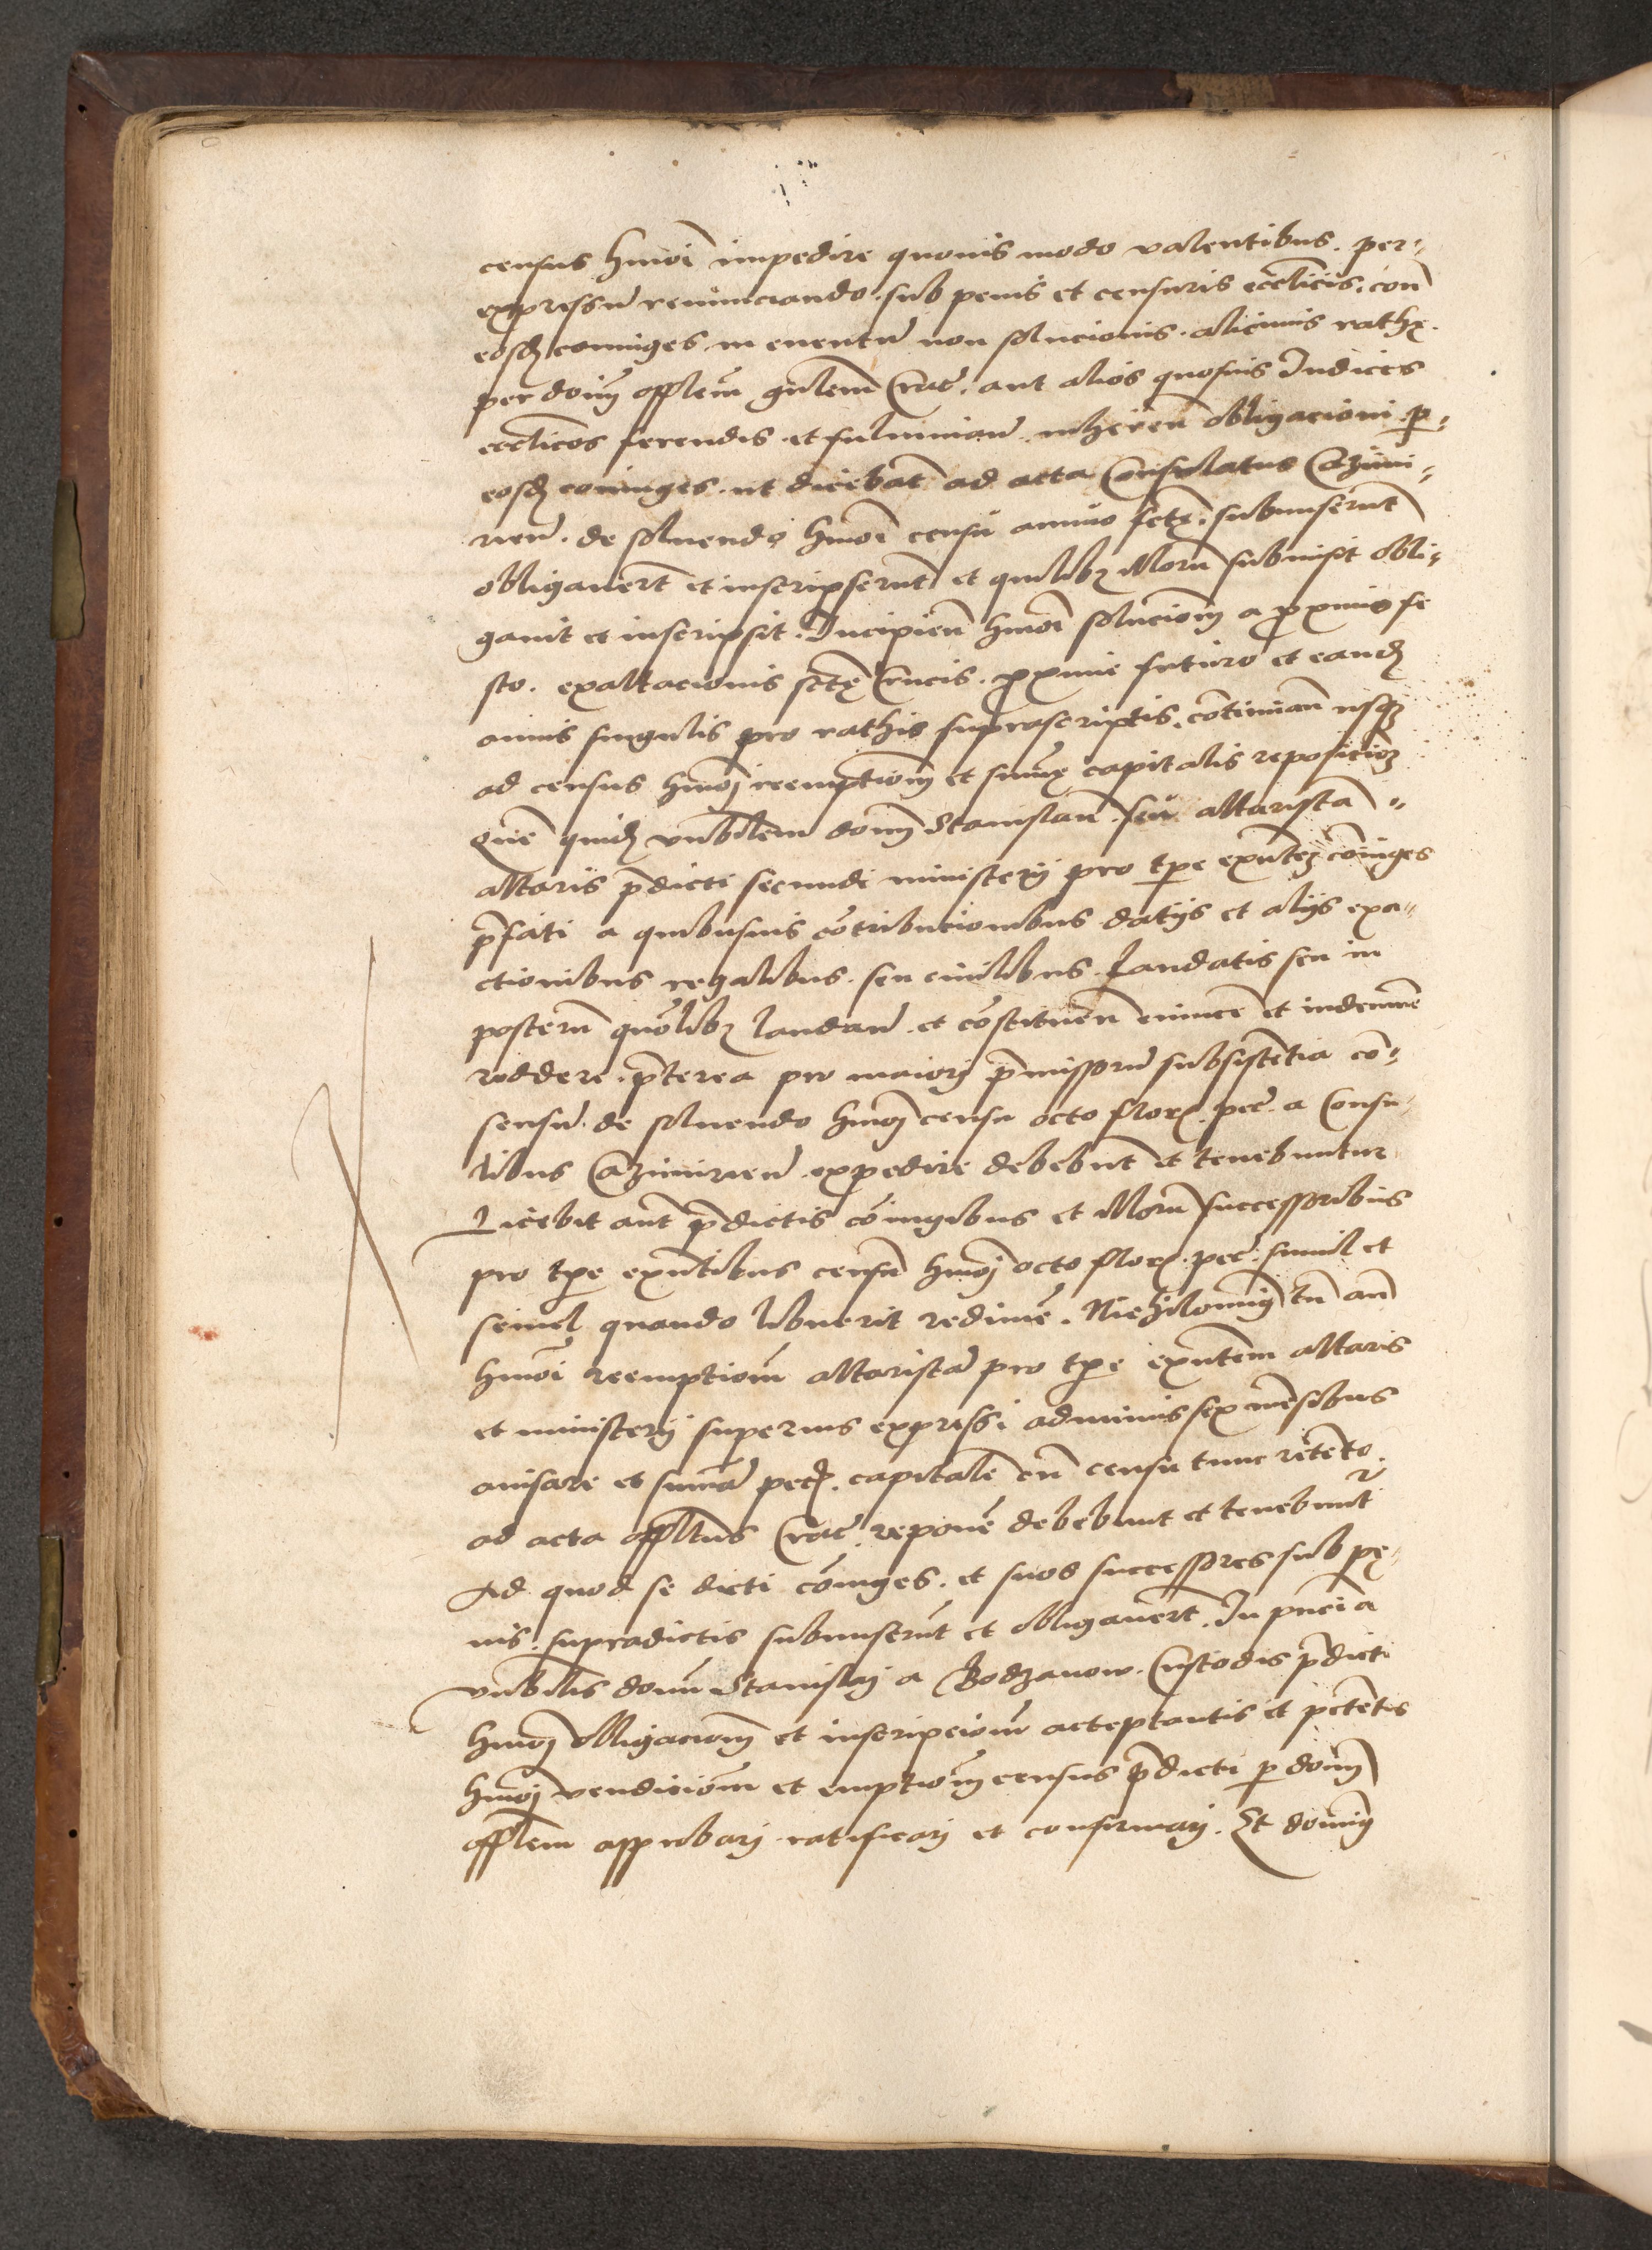 census hmoi impedire quouis modo valentibus. per-
expressu renunciando. sub penis et censuris eccleticis. con
eosd coniuges in euentu non solucionis. alicuius rathę.
per dnum offlem gnlem Crac. aut alios quosuis Judices
eccticos ferendis et fulminan. inheren obligacioni p
eosd coniuges. ut dicebat ad acta Consulatus Cazimi-
rien. de soluendo hmoi censu annuo fctę. submiserunt
obligauert et inscripserunt et quilibz illoru submisit obli-
gauit et inscripsit. Incipien hmoi solucionem a proximo fe
sto. exaltacionis sctę Crucis. proxime futuro et eand
annis singulis pro rathis suprascriptis. continuan usqz
ad census hmoj reemptionem et summę capitalis reposicionem
Que quid vnbilem dnm Stanislau. seu altarista
altaris pdicti secundi ministerij pro tpe exntem coniuges
pfati a quibusuis contribucionibus datijs et alijs exa-
ctionibus regalibus. seu ciuilibus. laudatis seu in
posteru quolibz laudan. et constituen eximere et indemne
reddere. pterea pro maiorj pmissoru subsistentia con-
sensu. de soluendo hmoj censu octo flor. pec. a Consu
libus Cazimirien expedire debebunt et tenebuntur
Licebit aut pdictis coniugibus et illoru successoribus
pro tpe exntibus censu hmoj octo flor. pec. simul et
semel quando libuerit redimere. Nichilominus tn an
hmoi reemptionem altarista pro tpe exntem altaris
et ministerij superius expressi adminus sex mensibus
auisare et summa pec. capitale cu censu tunc retento.
ad acta offltus Crac. reponere debebunt et tenebunt
Ad quod se dicti coniuges. et suos successores sub pę
nis. supradictis submiserut et obligauert. In pncia
vnbilis dnm Stanislaj a Bodzanow. Custodis pdicti
hmoj obligacionem et inscripcionem acceptantis et petentis
hmoj vendicionem et emptionem census pdicti p dnm
offlem approbarj ratificarj et confirmarj. Et dominus